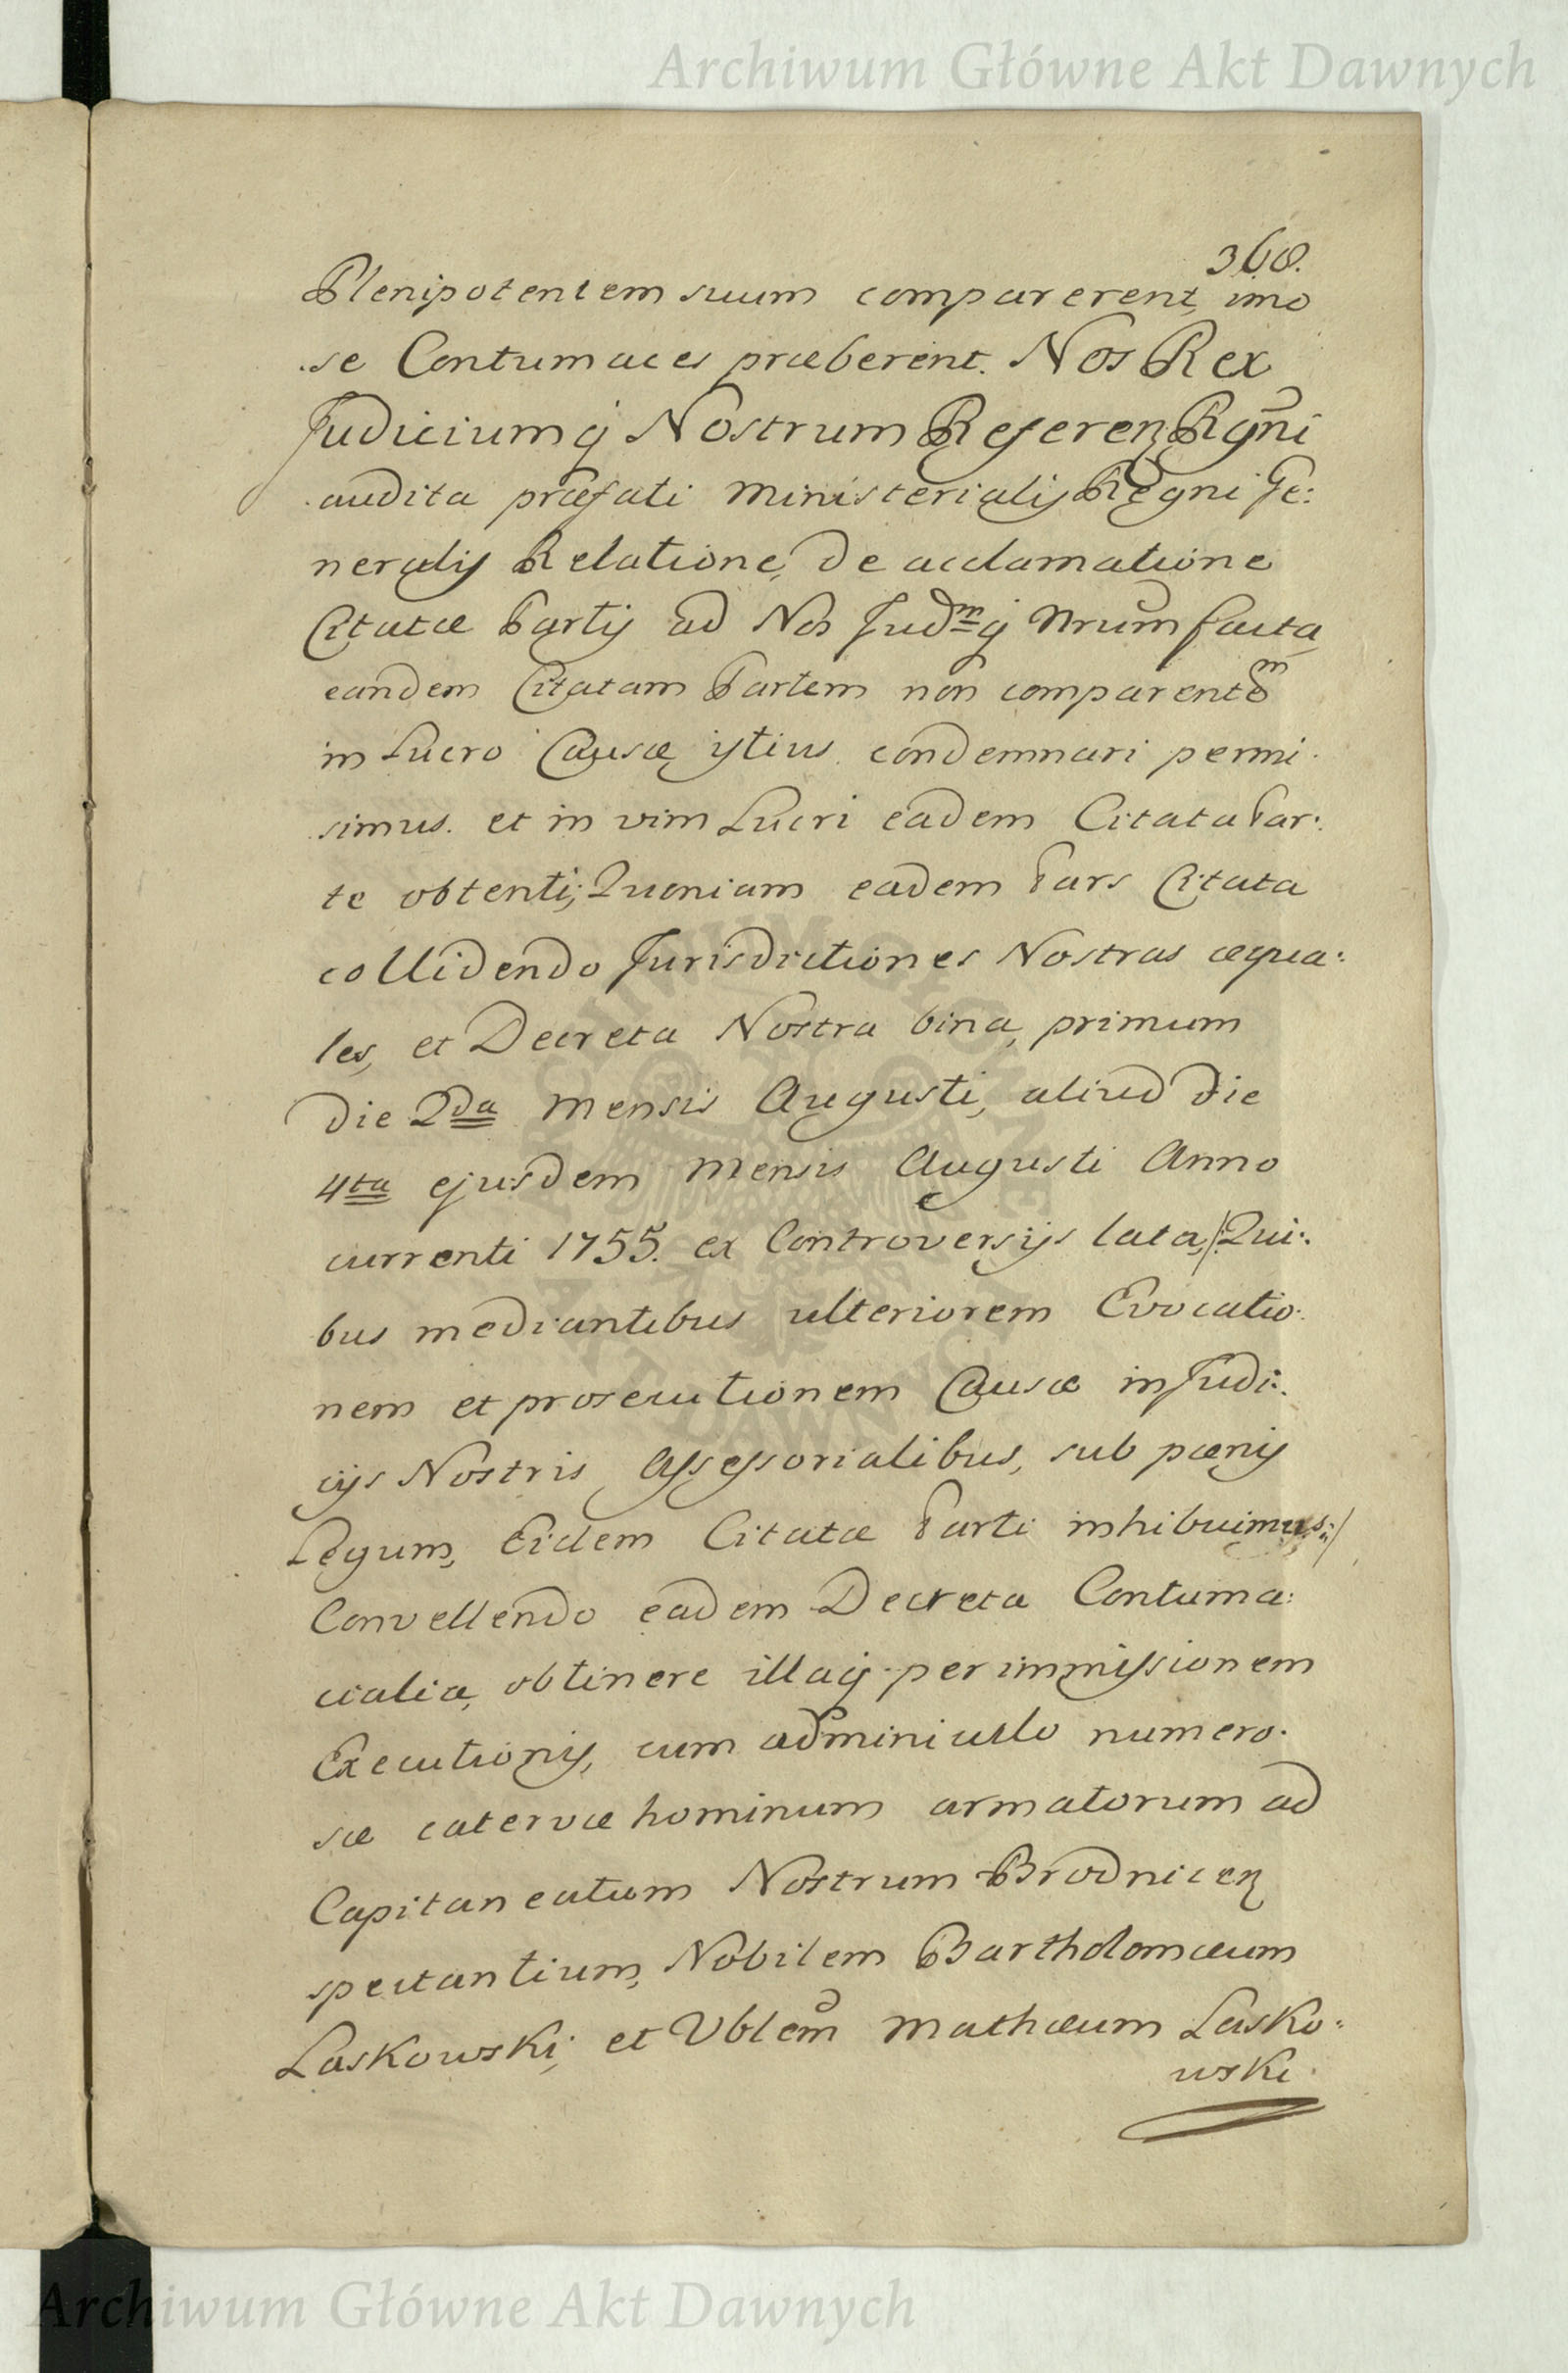 Archiwum Główne Akt Dawnych
368.
Plenipotentem suum comparerent, imo
se Contumaces præberent. Nos Rex
Judiciumq Nostrum Referenz Rgni
audita præfati Ministerialis Regni Ge:
neralis Relatione, de acclamatione
Citatæ Partis ad Nos Judmq Nrum facta
eandem Citatam Partem non comparentem
in Lucro Causæ istius condemnari permi
simus. et in vim Lucri eadem Citata Par:
te obtenti; Quoniam eadem Pars Citata
collidendo Jurisdictiones Nostras æqua:
les, et Decreta Nostra bina, primum
die 2da Mensis Augusti, aliud die
4ta ejusdem Mensis Augusti Anno
currenti 1755. ex Controversijs lata, /:Qui:
bus mediantibus ulteriorem Evocatio:
nem et prosecutionem Causæ in Judi:
cijs Nostris Assessorialibus, sub pænis
Legum, Eidem Citatæ Parti inhibuimus:/
Convellendo eadem Decreta Contuma:
cialia, obtinere illaq per immissionem
Executionis, cum adminiculo numero:
sæ catervæ hominum armatorum ad
Capitaneatum Nostrum Brodnicen
spectantium, Nobilem Bartholomæum
Laskowski, et Nblem Mathæum Lasko:
wski
ARCHIWUM GŁÓWNE AKT DAWNYCH
Archiwum Główne Akt Dawnych